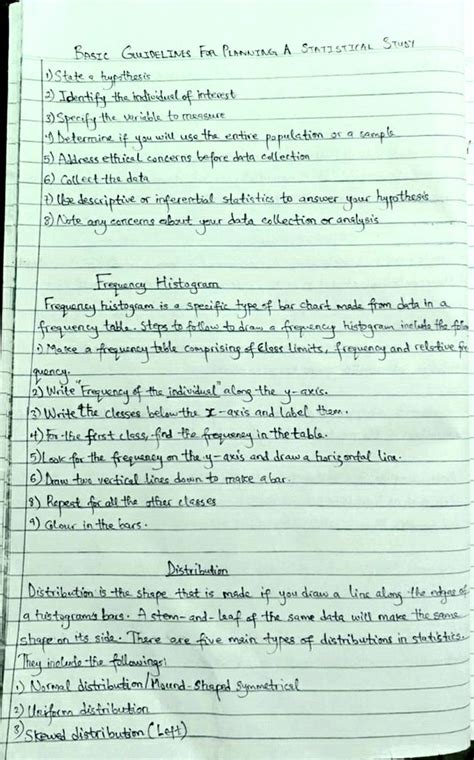 BASIC GUIDELINES FOR PLANNING A STATISTICAL STUDY
1) State a hypothesis
2) Identify the individual of interest
3) Specify the variable to measure
4) Determine if you will use the entire population or a sample
5) Address ethical concerns before data collection
6) Collect the data
7) Use descriptive or inferential statistics to answer your hypothesis
8) Note any concerns about your data collection or analysis
Frequency Histogram
Frequency histogram is a specific type of bar chart made from data in a
frequency table. Steps to follow to draw a frequency histogram include the
1) Make a frequency table comprising of Class limits, frequency and relative fre
quency.
2) Write "Frequency of the individual" along the y-axis.
3) Write the classes below the x-axis and label them.
4) For the first class, find the frequency in the table.
5) Look for the frequency on the y-axis and draw a horizontal line.
6) Draw two vertical lines down to make a bar.
8) Repeat for all the other classes
9) Colour in the bars.
Distribution
Distribution is the shape that is made if you draw a line along the edges of
a histogram's bars. A stem-and-leaf of the same data will make the same
shape on its side. There are five main types of distributions in statistics.
They include the followings:
1) Normal distribution/Mound-Shaped Symmetrical
2) Uniform distribution
3) Skewed distribution (Left)